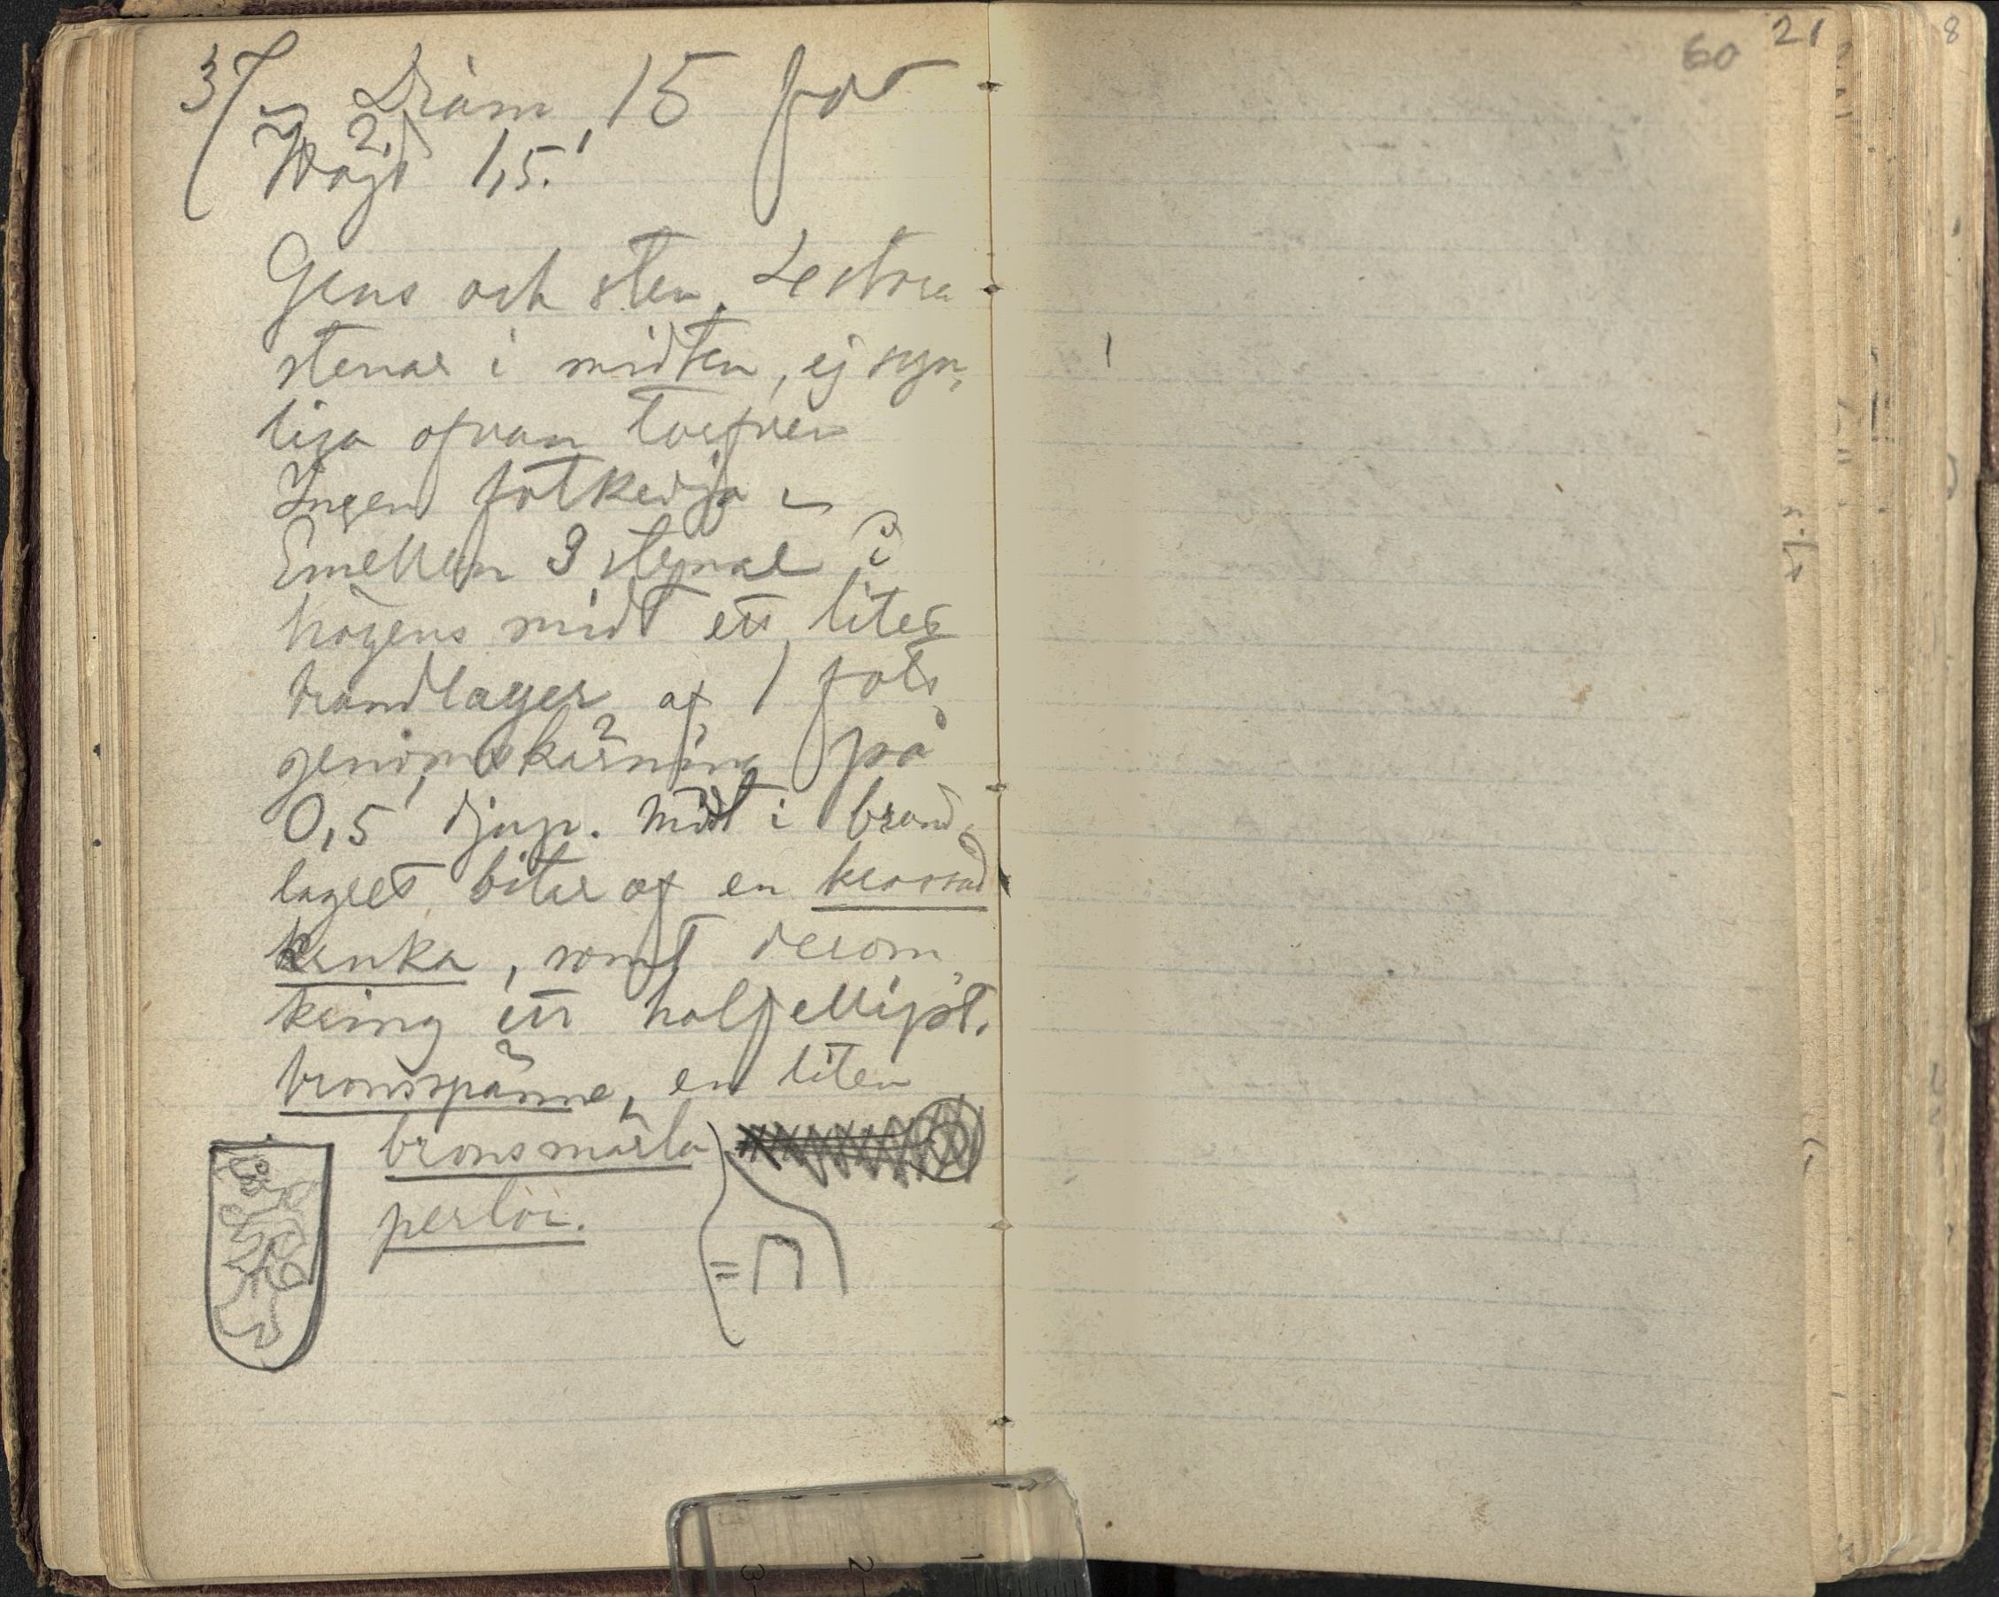 37. Diam. 15 fot
Höjd 1,5.'
Grus och sten. 4 stora
stenar i midten, ej syn-
liga ofvan torfven
Ingen fotkedja
Emellan 3 stenar i
högens midt ett litet
brandlager af 1 fots
genomskärning på
0,5' djup. Midt i brand-
lagret bitar af en krossad
kruka, samt derom-
kring ett half ellipt.
bronsspänne, en liten
bronsmärla
perlor.
=
60
21
8